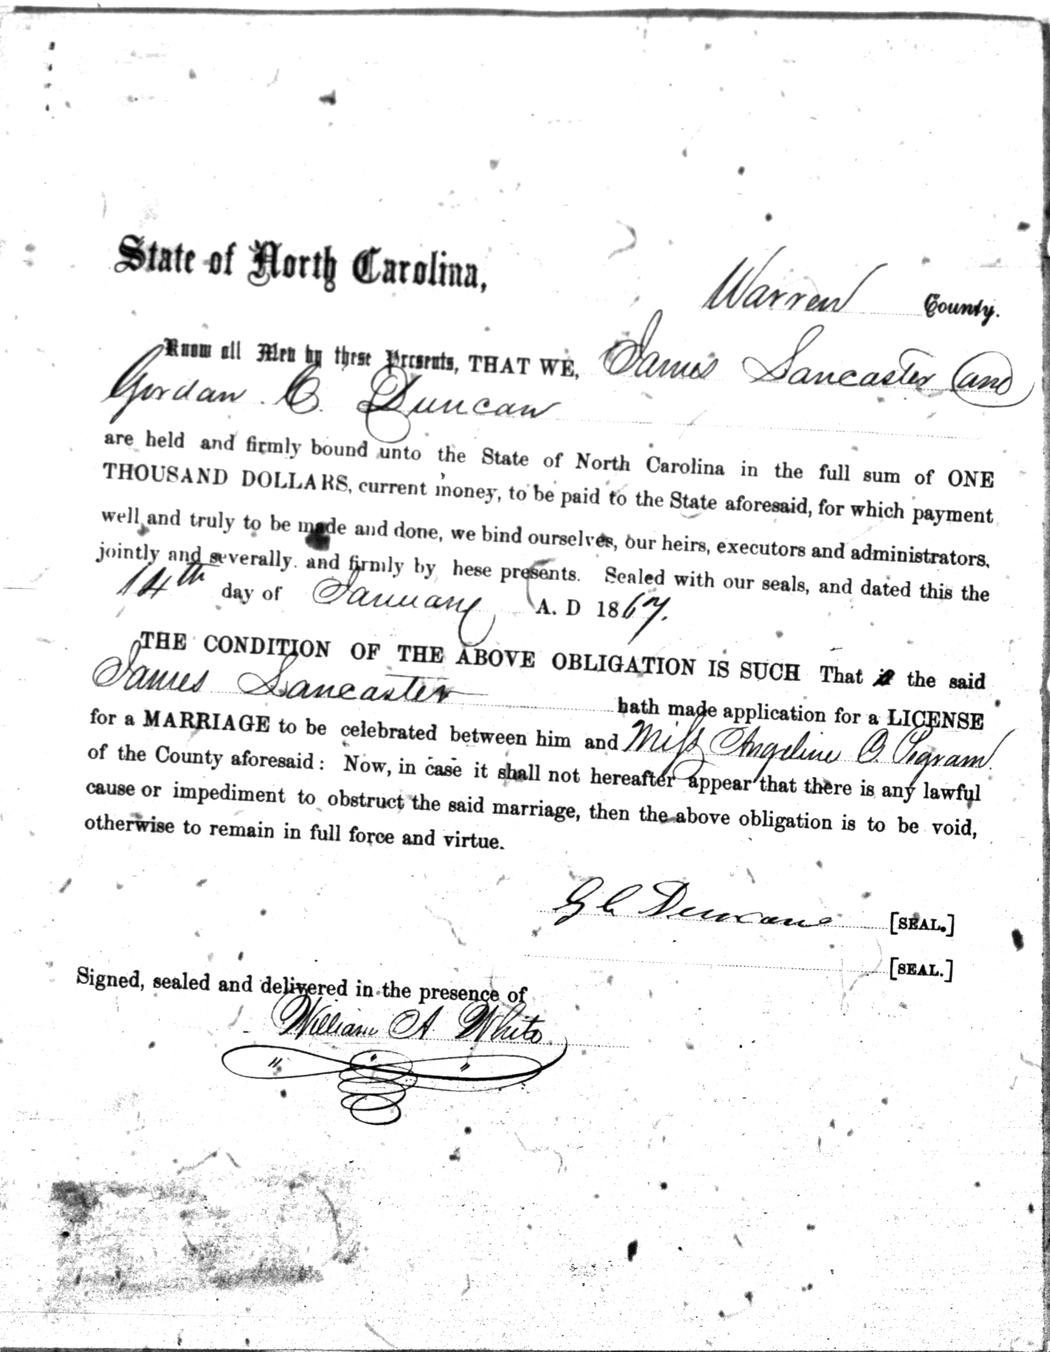 State of North Carolina,
Warren County.
Know all Men by these Presents, THAT WE, James Lancaster and
Gordan C. Duncan
are held and firmly bound unto the State of North Carolina in the full sum of ONE
THOUSAND DOLLARS, current money, to be paid to the State aforesaid, for which payment
well and truly to be made and done, we bind ourselves, our heirs, executors and administrators,
jointly and severally. and firmly by hese presents. Sealed with our seals, and dated this the
14th day of January A. D 1867.
THE CONDITION OF THE ABOVE OBLIGATION IS SUCH That the said
James Lancaster hath made application for a LICENSE
for a MARRIAGE to be celebrated between him and Miss Angeline O. Pegram.
of the County aforesaid: Now, in case it shall not hereafter appear that there is any lawful
cause or impediment to obstruct the said marriage, then the above obligation is to be void,
otherwise to remain in full force and virtue.
G C Duncan [SEAL.]
[SEAL.]
Signed, sealed and delivered in the presence of
William A. White